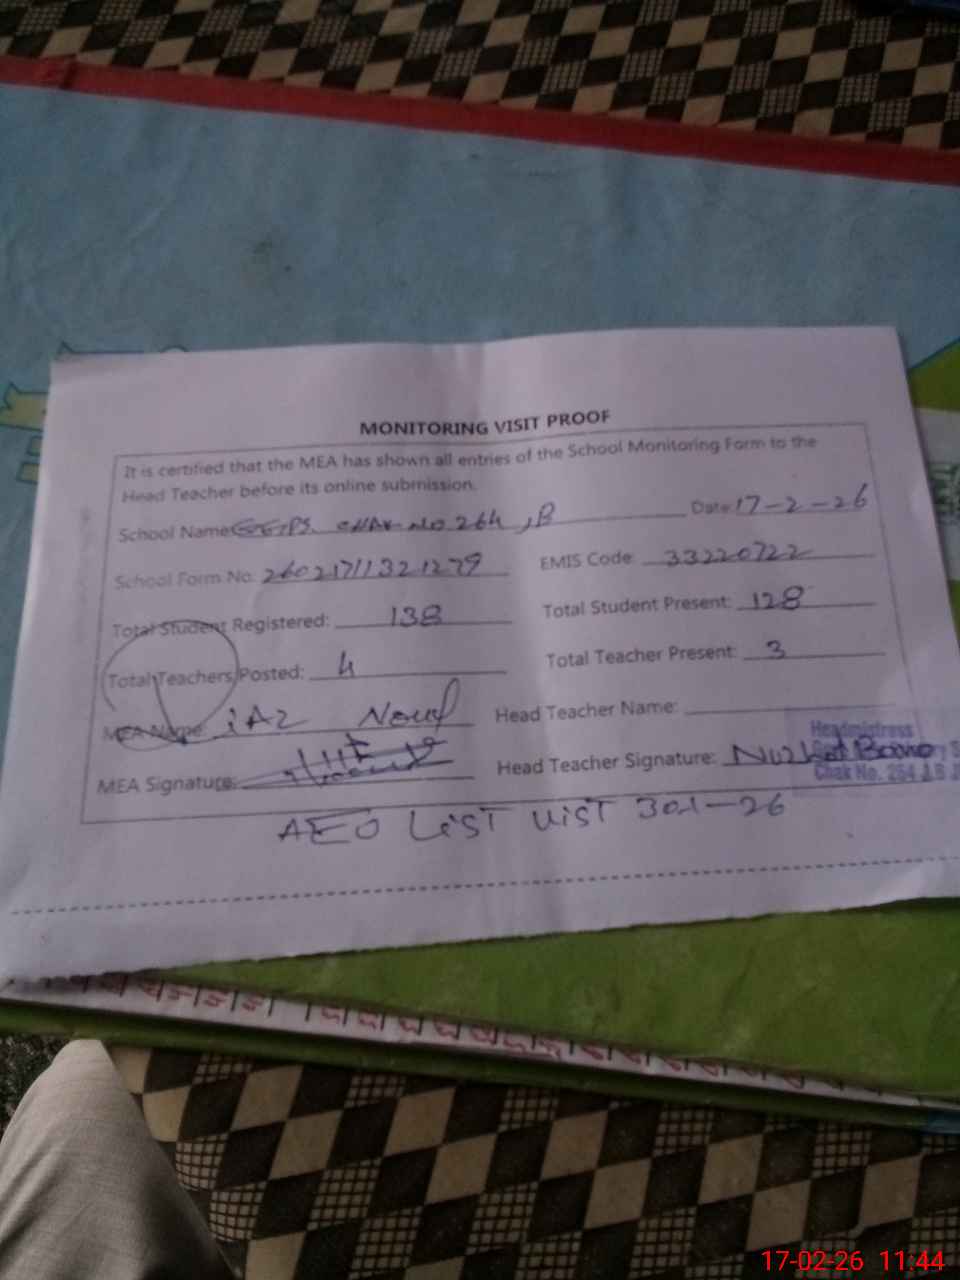 MONITORING VISIT PROOF
It is certified that the MEA has shown all entries of the School Monitoring Form to the
Head Teacher before its online submission.
School Name: GGPS. CHAK No 264 JB Date: 17-2-26
School Form No: 26021711321279 EMIS Code: 33220722
Total Student Registered: 138 Total Student Present: 128
Total Teachers Posted: 4 Total Teacher Present: 3
MEA Name: Head Teacher Name:
MEA Signature: Head Teacher Signature: Nuzhat Bano
Headmistress
Chak No. 264 J.B
AEO LeST ViST 30-1-26
17-02-26 11:44